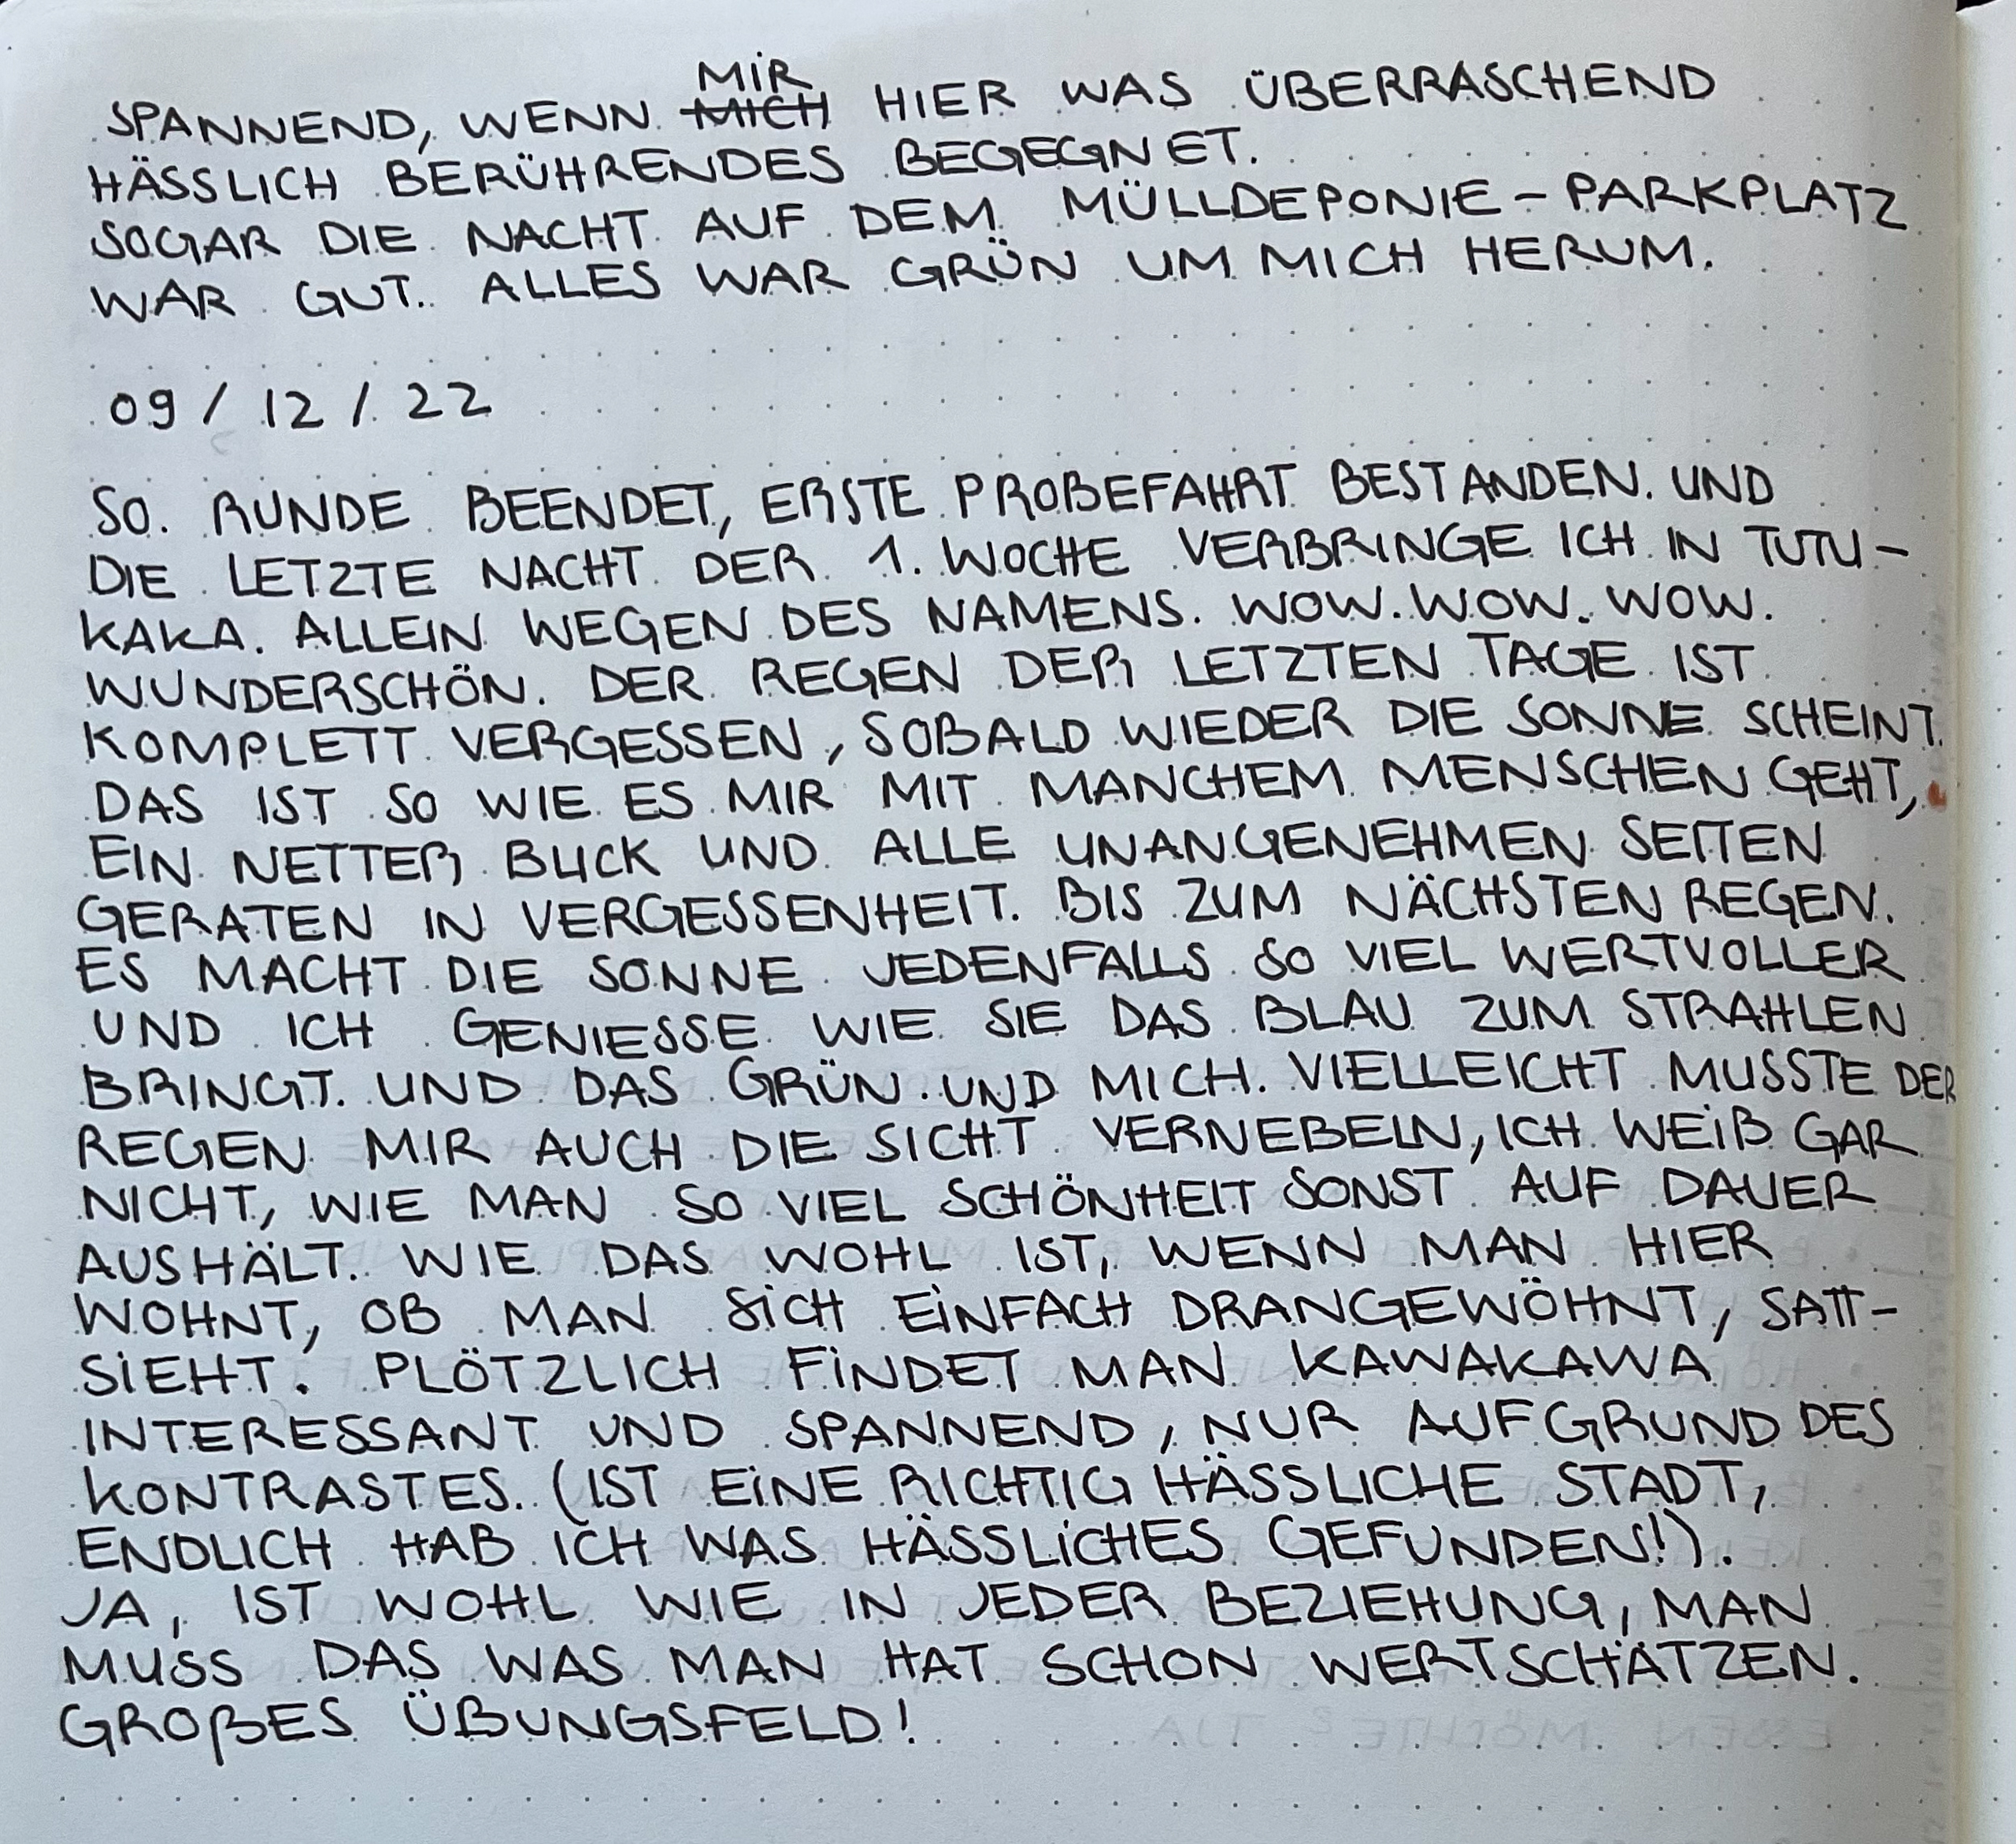 SPANNEND, WENN MIR HIER WAS ÜBERRASCHEND
HÄSSLICH BERÜHRENDES BEGEGNET.
SOGAR DIE NACHT AUF DEM MÜLLDEPONIE - PARKPLATZ
WAR GUT. ALLES WAR GRÜN UM MICH HERUM.
09 / 12 / 22
SO. RUNDE BEENDET, ERSTE PROBEFAHRT BESTANDEN. UND
DIE LETZTE NACHT DER 1. WOCHE VERBRINGE ICH IN TUTU-
KAKA. ALLEIN WEGEN DES NAMENS. WOW. WOW. WOW.
WUNDERSCHÖN. DER REGEN DER LETZTEN TAGE IST
KOMPLETT VERGESSEN, SOBALD WIEDER DIE SONNE SCHEINT.
DAS IST SO WIE ES MIR MIT MANCHEM MENSCHEN GEHT,
EIN NETTER BLICK UND ALLE UNANGENEHMEN SEITEN
GERATEN IN VERGESSENHEIT. BIS ZUM NÄCHSTEN REGEN.
ES MACHT DIE SONNE JEDENFALLS SO VIEL WERTVOLLER
UND ICH GENIESSE WIE SIE DAS BLAU ZUM STRAHLEN
BRINGT. UND DAS GRÜN. UND MICH. VIELLEICHT MUSSTE DER
REGEN MIR AUCH DIE SICHT VERNEBELN, ICH WEIß GAR
NICHT, WIE MAN SO VIEL SCHÖNHEIT SONST AUF DAUER
AUSHÄLT. WIE DAS WOHL IST, WENN MAN HIER
WOHNT, OB MAN SICH EINFACH DRANGEWÖHNT, SATT-
SIEHT. PLÖTZLICH FINDET MAN KAWAKAWA
INTERESSANT UND SPANNEND, NUR AUFGRUND DES
KONTRASTES. (IST EINE RICHTIG HÄSSLICHE STADT,
ENDLICH HAB ICH WAS HÄSSLICHES GEFUNDEN!).
JA, IST WOHL WIE IN JEDER BEZIEHUNG, MAN
MUSS DAS WAS MAN HAT SCHON WERTSCHÄTZEN.
GROßES ÜBUNGSFELD!